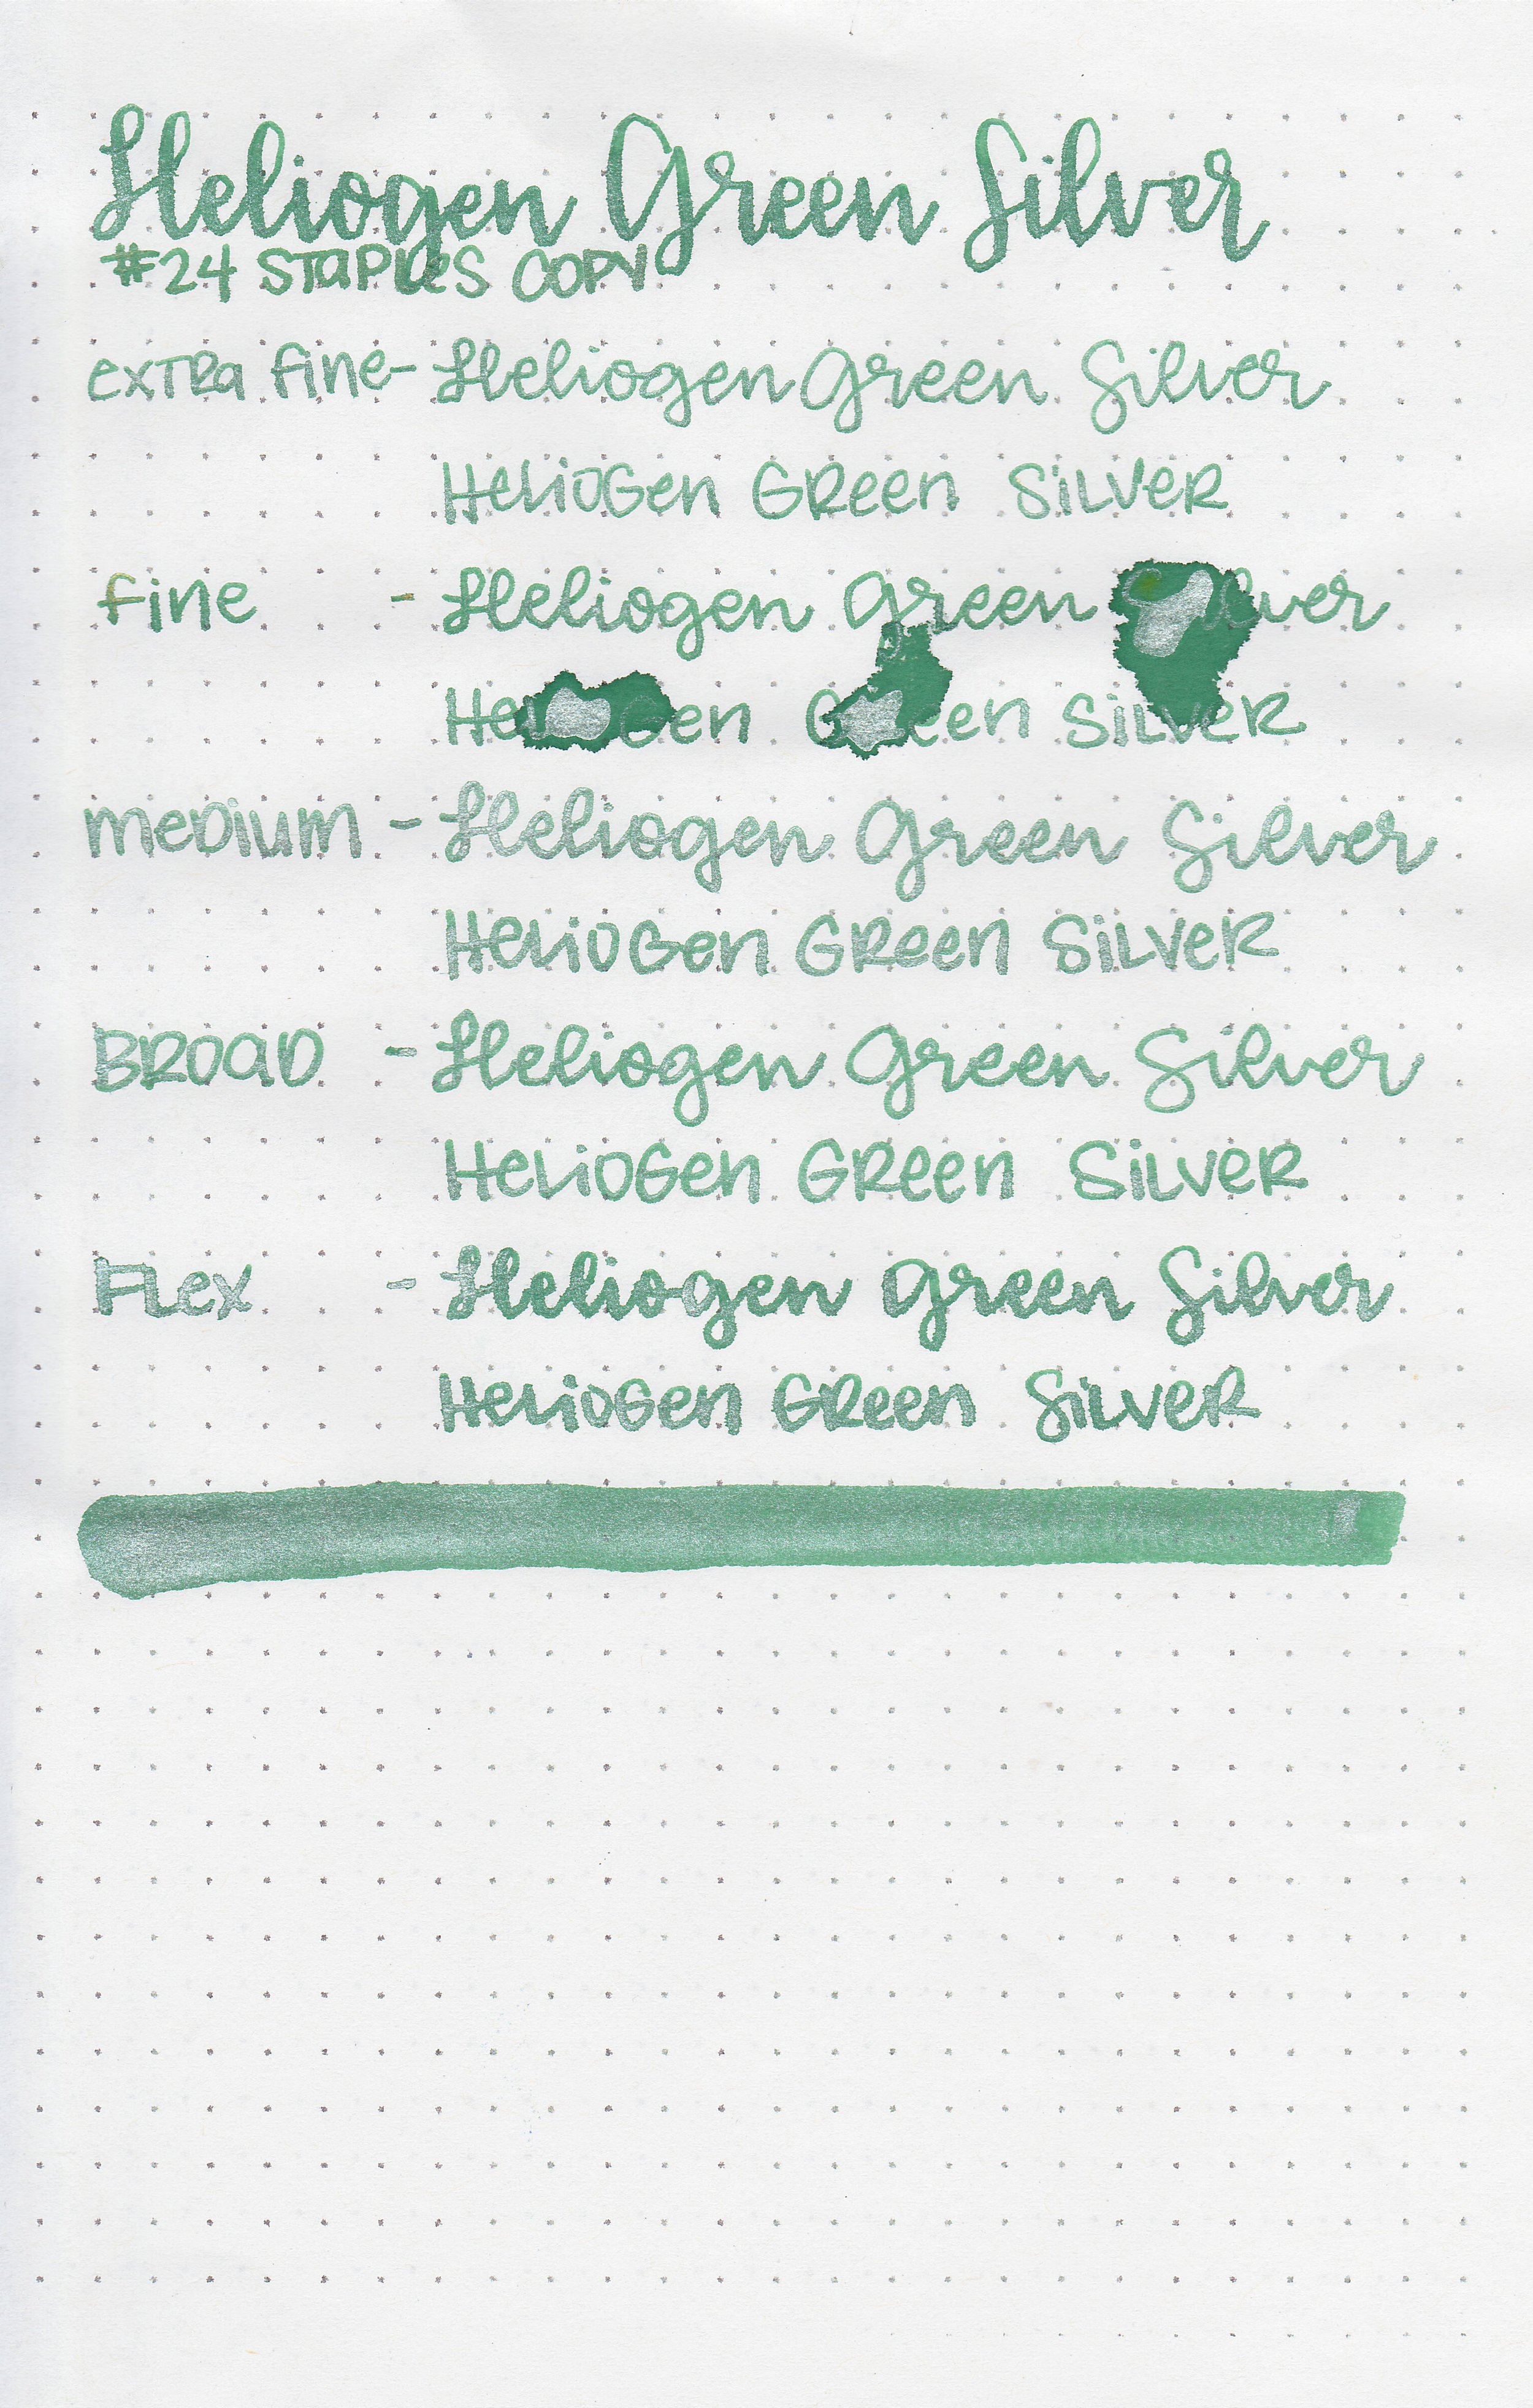 Heliogen Green Silver
#24 STaPLeS COPY
exTRa fine - Heliogen Green Silver
HeLiOGen GReen SiLVeR
fine - Heliogen Green Silver
HeLiOGen GReen SiLVeR
meDium - Heliogen Green Silver
HeLiOGen GReen SiLVeR
BROaD - Heliogen Green Silver
HeLiOGen GReen SiLVeR
FLex - Heliogen Green Silver
HeLiOGen GReen SiLVeR